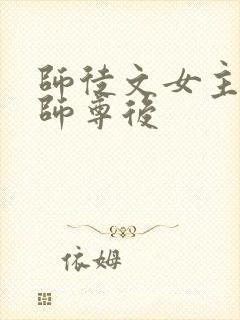 師徒文女主
師尊後
依姆